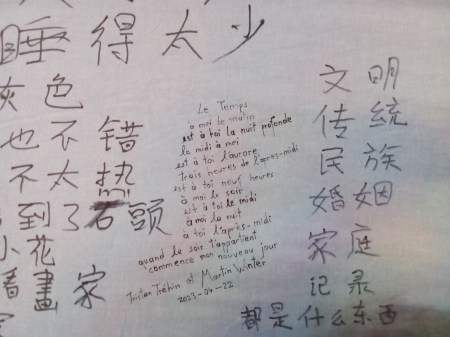 睡得太少
灰色
也不错
不太热
到了石頭
小花
看畫家
Le Temps
à moi le matin
est à toi la nuit profonde
le midi à moi
est à toi l'aurore
trois heures de l'après-midi
est à toi neuf heures
à moi le soir
est à toi le midi
à moi la nuit
à toi l'après-midi
quand le soir t'appartient
commence mon nouveau jour
Tristan Tréhin et Martin Winter
2023-04-22
文明
传统
民族
婚姻
家庭
记录
都是什么东西